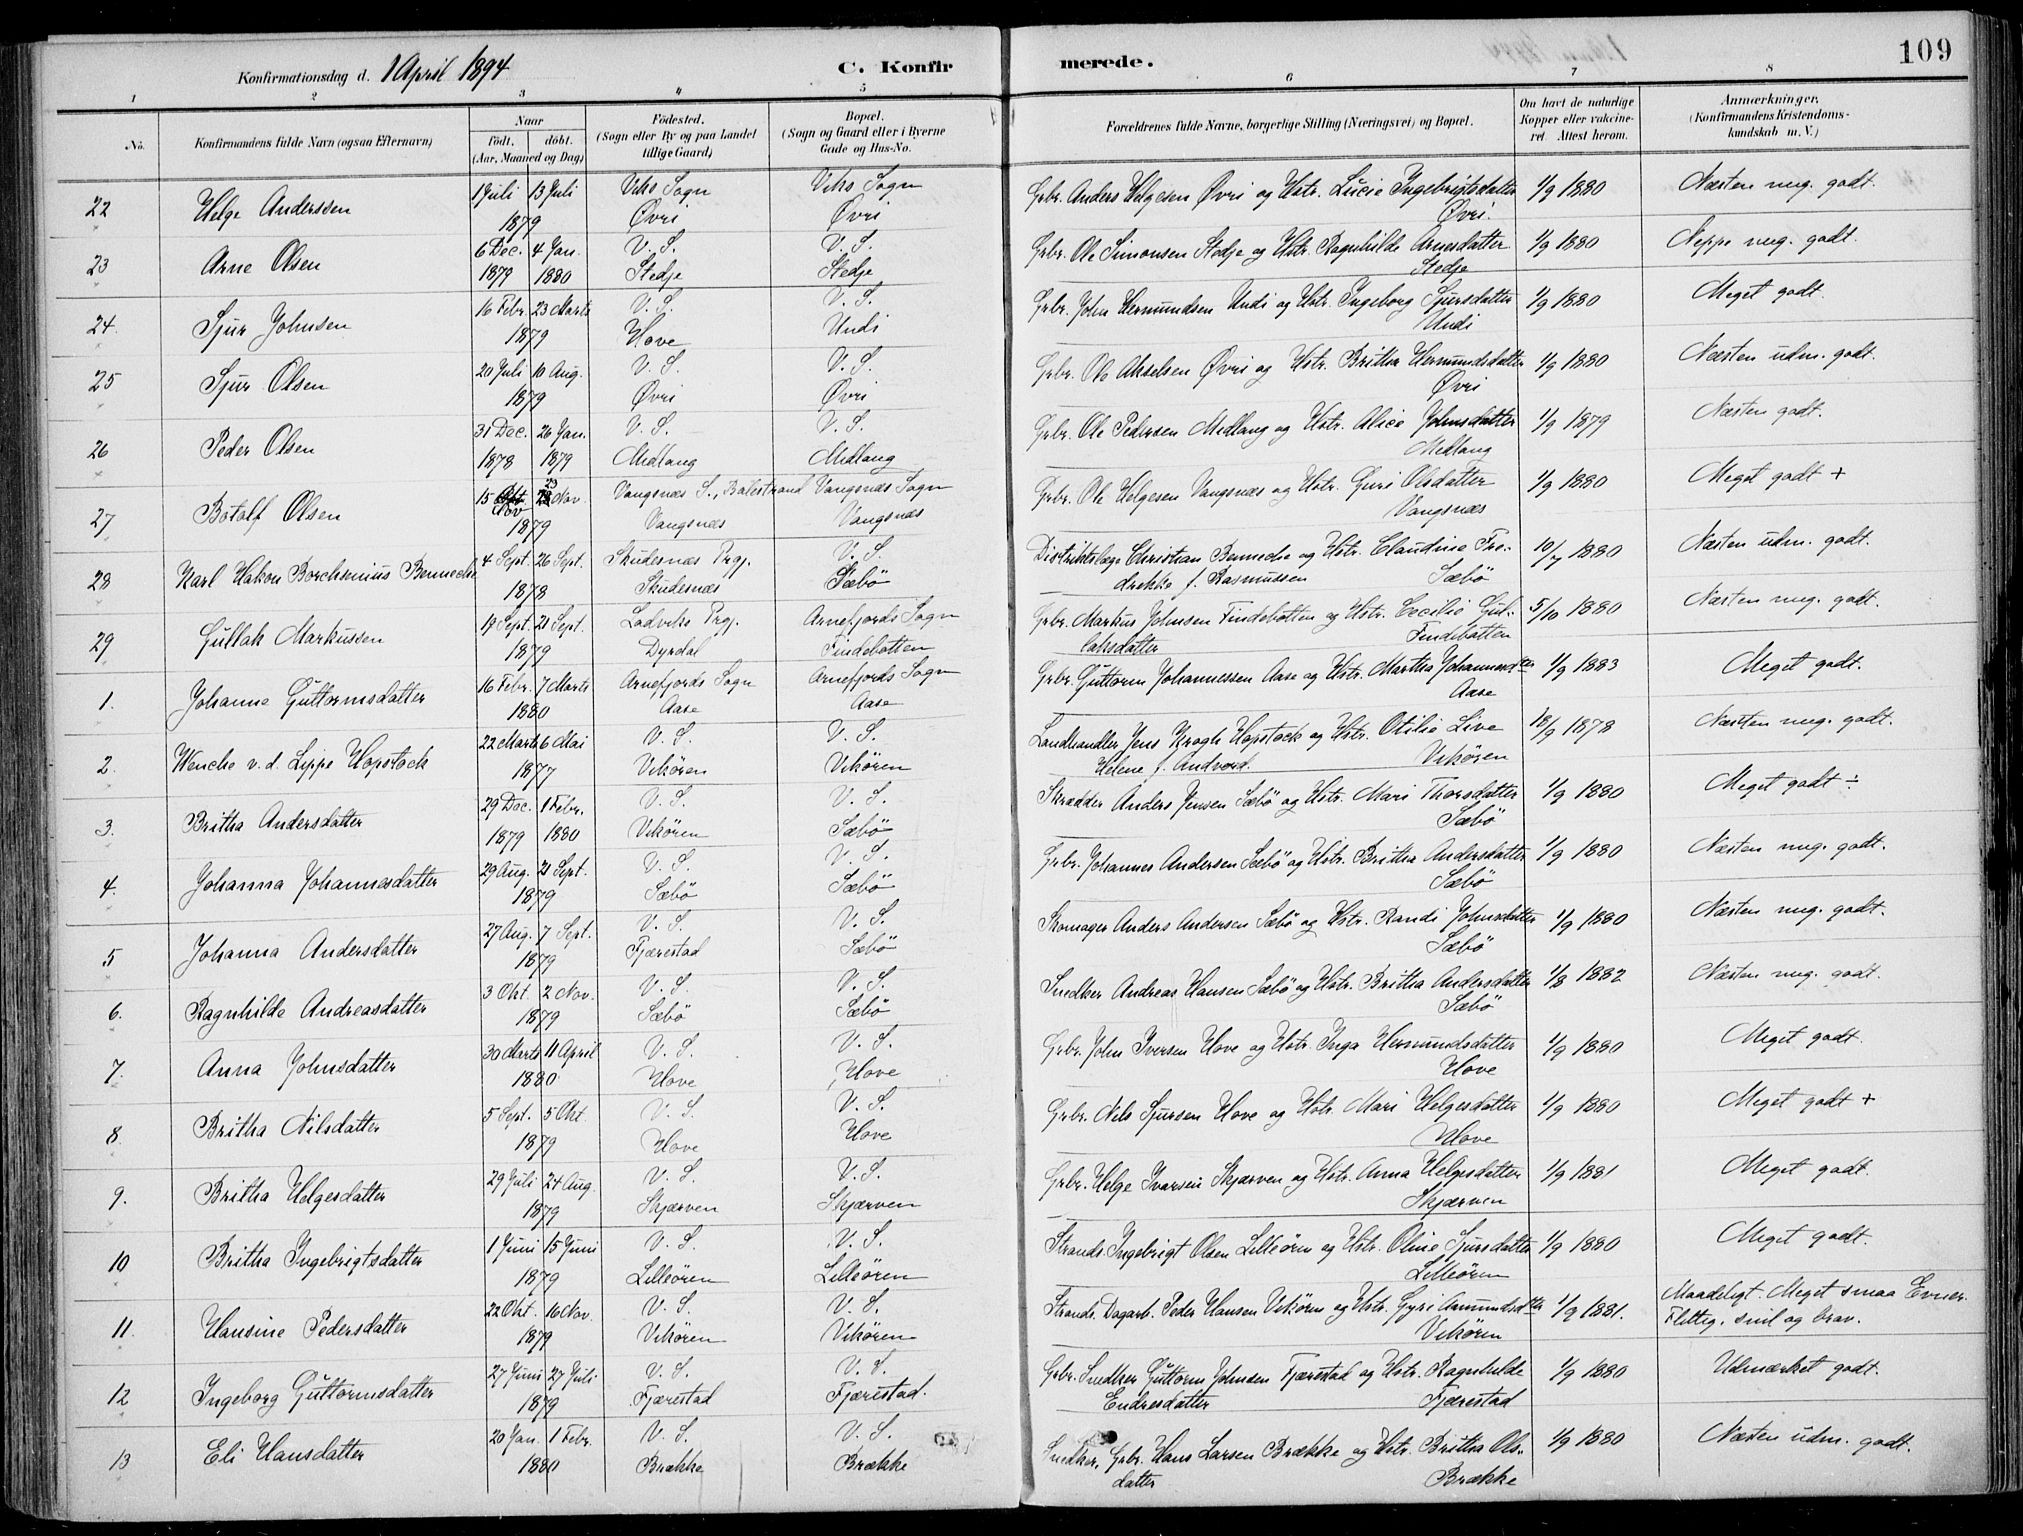 Konfirmationsdag d. 1 April 1894
C. Konfirmerede.
109
1 2 3 4 5 6 7 8
No.
Konfirmandens fulde Navn (ogsaa Efternavn)
Naar
födt. döbt.
(Aar, Maaned og Dag)
Födested.
(Sogn eller By og paa Landet tillige Gaard)
Bopæl.
(Sogn og Gaard eller i Byerne Gade og Hus-No.
Forældrenes fulde Navne, borgerlige Stilling (Næringsvei) og Bopæl.
Om havt de naturlige Kopper eller vakcineret. Attest herom.
Anmærkninger.
(Konfirmandens Kristendomskundskab m. V.)
22 Helge Anderssen 1 Juli 13 Juli 1879 Viks Sogn Øvri Viks Sogn Øvri Grbr. Anders Helgesen Øvri og Hstr. Lucie Ingebrigtsdatter Øvri. 1/9 1880 Næsten meg. godt.
23 Arne Olsen 6 Dec. 1879 4 Jan. 1880 V. S. Stedje V. S. Stedje Grbr. Ole Simonsen Stedje og Hstr. Ragnhilde Arnesdatter Stedje 1/9 1880 Neppe meg. godt.
24. Sjur Johnsen 16 Febr. 23 Marts 1879 V. S. Hove V. S. Undi Grbr. John Hermundsen Undi og Hstr. Ingeborg Sjursdatter Undi 1/9 1880 Meget godt.
25 Sjur Olsen 20 Juli 10 Aug. 1879 V. S. Øvri V. S. Øvri Grbr. Ole Akselsen Øvri og Hstr. Britha Hermundsdatter Øvri 1/9 1880 Næsten udm. godt.
26 Peder Olsen 31 Dec. 1878 26 Jan. 1879 V. S. Midlang V. S. Midlang Grbr. Ole Pedersen Midlang og Hstr. Alice Johnsdatter Midlang 1/9 1879 Næsten godt.
27 Botolf Olsen 15 Okt Nov 23 Nov. 1879 Vangsnæs S., Balestrand Vangsnæs Vangsnæs Sogn Vangsnæs Grbr. Ole Helgesen Vangsnæs og Hstr. Guri Olsdatter Vangsnæs 1/9 1880 Meget godt +
28 Karl Hakon Borchsenius Benneche 4 Sept. 26 Sept. 1878 Skudesnæs Prgj. Skudesnæs V. S. Sæbö Distriktslæge Christian Benneche og Hstr. Claudine Fredrekke f. Rasmussen Sæbö 10/7 1880 Næsten udm. godt.
29 Gullak Markussen 17 Sept. 21 Sept. 1879 Ladviks Prgj. Dyrdal Arnefjords Sogn Findebotten Grbr. Markus Johnsen Findebotten og Hstr. Cecilie Gullaksdatter Findebotten 5/10 1880 Næsten meg. godt.
1. Johanne Guttormsdatter 16 Febr. 7 Marts 1880 Arnefjords Sogn Aase Arnefjords Sogn Aase Grbr. Guttorm Johannessen Aase og Hstr. Martha Johannesdtr Aase 1/9 1883 Meget godt.
2. Wenche v. d. Lippe Hopstock 22 Marts 6 Mai 1877 V. S. Vikören V. S. Vikören Landhandler Jens Krogh Hopstock og Hstr. Otilie Live Helene f. Andvord. Vikören 18/9 1878 Næsten meg. godt.
3. Britha Andersdatter 29 Dec. 1879 1 Febr. 1880 V. S. Vikören V. S. Sæbö Skrædder Anders Jensen Sæbö og Hstr. Mari Thorsdatter Sæbö 1/9 1880 Meget godt ÷
4. Johanna Johannesdatter 29 Aug. 21 Sept. 1879 V. S. Sæbö V. S. Sæbö Grbr. Johannes Andersen Sæbö og Hstr. Britha Andersdatter Sæbö 1/9 1880 Næsten meg. godt.
5 Johanna Andersdatter 27 Aug. 7 Sept. 1879 V. S. Fjærestad V. S. Sæbö Skomager Anders Andersen Sæbö og Hstr. Randi Johnsdatter Sæbö 1/9 1880 Næsten meg. godt.
6. Ragnhilde Andreasdatter 3 Okt. 2 Nov. 1879 V. S. Sæbö V. S. Sæbö Snedker Andreas Hansen Sæbö og Hstr. Britha Andersdatter Sæbö 1/8 1882 Næsten meg. godt.
7. Anna Johnsdatter 30 Marts 11 April 1880 V. S. Hove V. S. Hove Grbr. John Iversen Hove og Hstr. Inga Hermundsdatter Hove 1/9 1880 Meget godt.
8. Britha Nilsdatter 5 Sept. 5 Okt. 1879 V. S. Hove V. S. Hove Grbr. Nils Sjursen Hove og Hstr. Mari Helgesdatter Hove 1/9 1880 Meget godt +
9. Britha Helgesdatter 29 Juli 24 Aug. 1879 V. S. Skjærven V. S. Skjærven Grbr. Helge Ivarsen Skjærven og Hstr. Anna Helgesdatter Skjærven 1/9 1881 Meget godt.
10 Britha Ingebrigtsdatter 1 Juni 15 Juni 1879 V. S. Lilleören V. S. Lilleören Strands. Ingebrigt Olsen Lilleören og Hstr. Oline Sjursdatter Lilleören 1/9 1880 Meget godt.
11. Hansine Pedersdatter 22 Okt. 16 Nov. 1879 V. S. Vikören V. S. Vikören Strands. Dagarb. Peder Hansen Vikören og Hstr. Gyri Amundsdtr Vikören 1/9 1881. Maadeligt. Meget smaa Evner. Flittig, snil og brav.
12 Ingeborg Guttormsdatter 27 Juni 27 Juli 1879 V. S. Fjærestad V. S. Fjærestad. Grbr. Snedker Guttorm Johnsen Fjærestad og Hstr. Ragnhilde Endresdatter Fjærestad 1/9 1880 Udmærket godt.
13 Eli Hansdatter 20 Jan. 1 Febr. 1880 V. S. Brække V. S. Brække Snedker, Grbr. Hans Larsen Brække og Hstr. Britha Olsdatter Brække 1/9 1880 Næsten udm. godt.